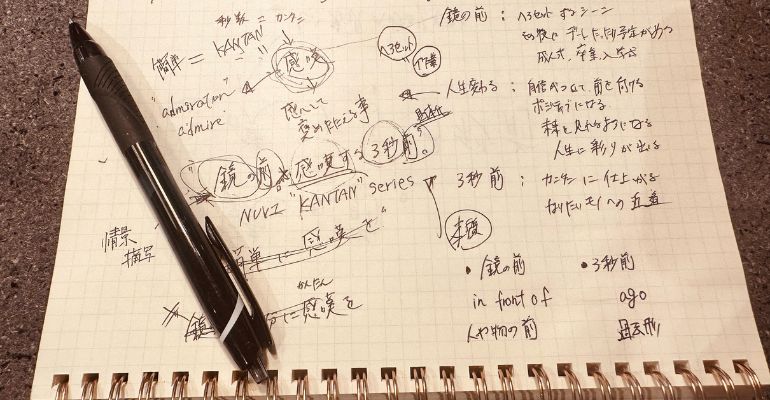 秒数 = カンタン
簡単 = "KANTAN" = 感嘆
"admiration"
admire
感心して
褒めたたえる事
ヘアセット
鏡の前 : ヘアセットするシーン
その後にデートだったり予定がある
成人式、卒業、入学
人生変わる : 自信がついて、前を向ける
ポジティブになる
未来を見れるようになる
人生に彩りが出る
"鏡の前で感嘆する3秒前。"
NUVI "KANTAN" series
3秒前 : カンタンに仕上がる
なりたいモノへの近道
未来
情景
描写
簡単に感嘆を"
かんたん
に感嘆を
• 鏡の前
in front of
人や物の前
• 3秒前
ago
過去形